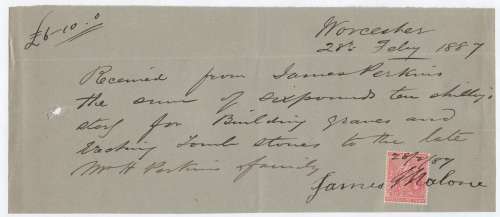 £6-10.0
Worcester
28th Feby 1887
Received from James Perkins
the sum of sixpounds ten shilling's
sterg for Building graves and
Erecting Tomb stones to the late
Mr H Perkins family
28/2/87
James Malone